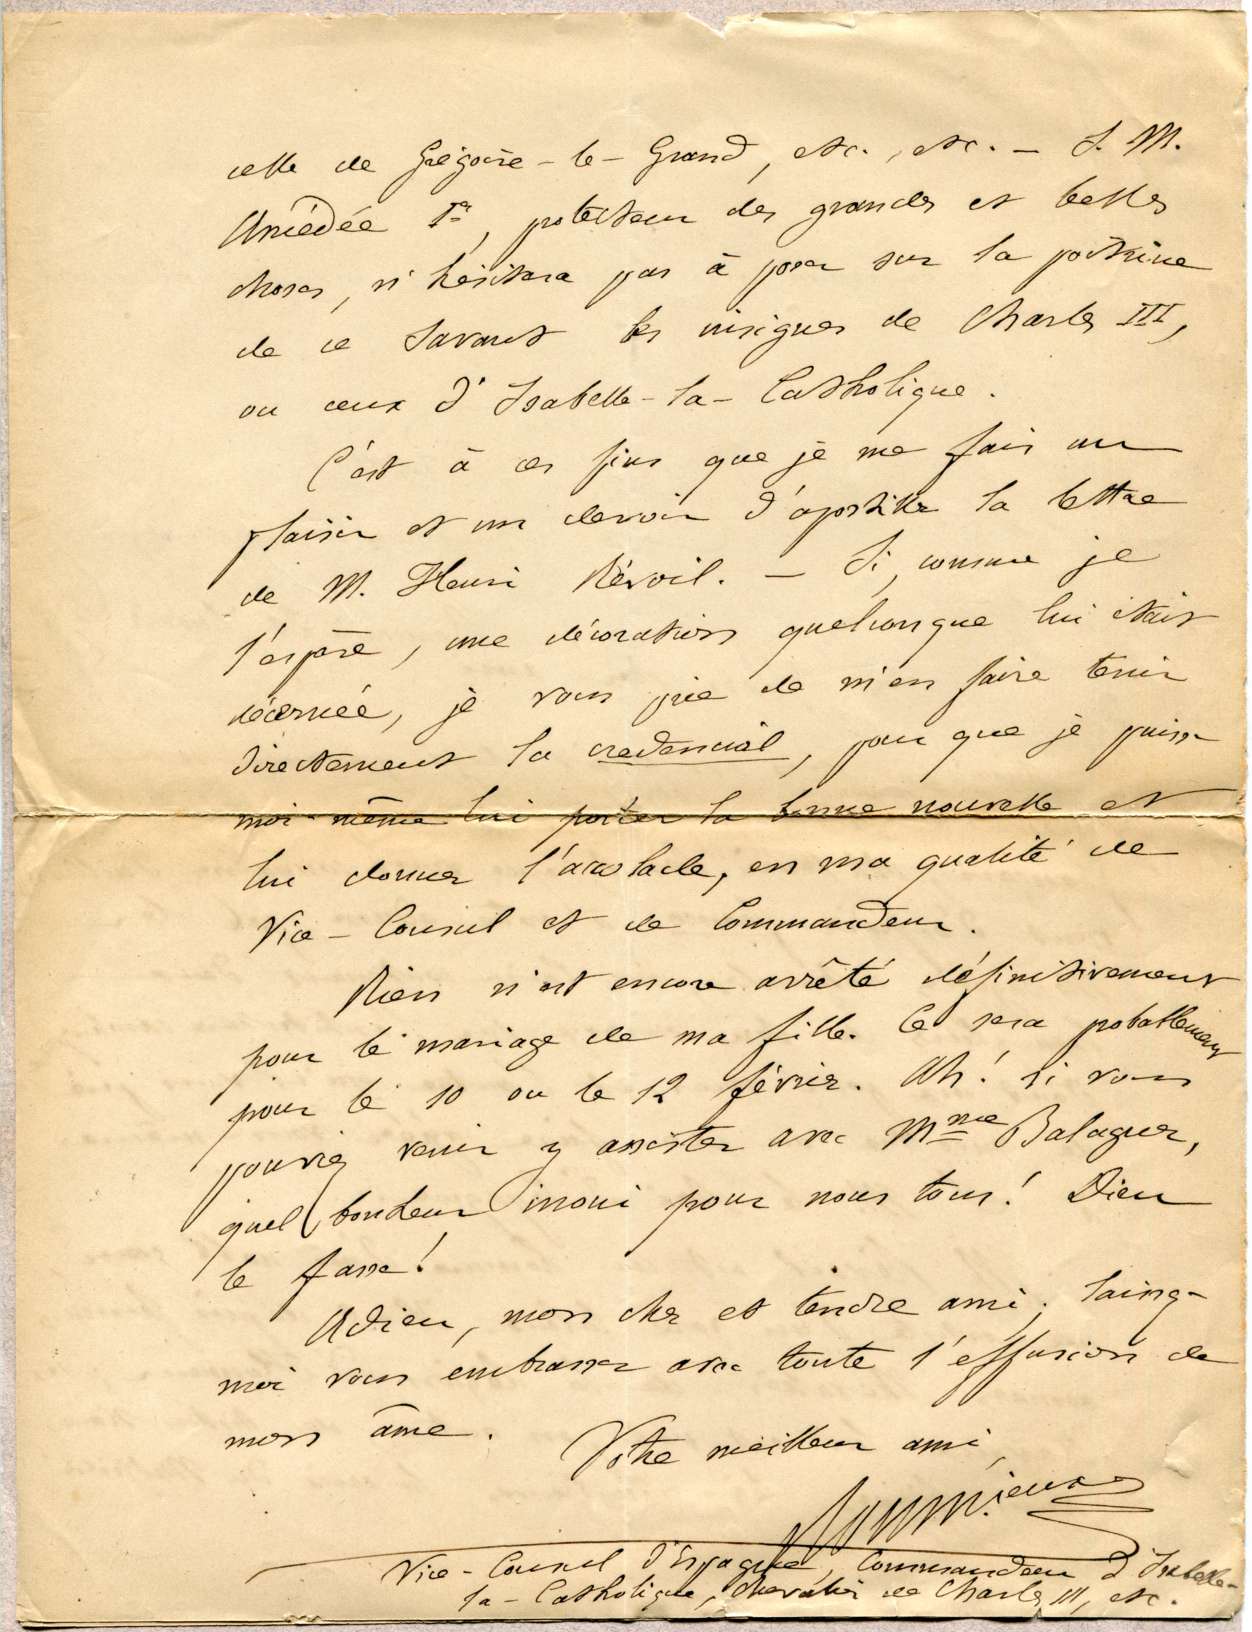 celle de Grégoire-le-Grand, etc., etc. — S. M.
Amédée Ier, protecteur des grandes et belles
choses, n'hésitera pas à poser sur la poitrine
de ce savant les insignes de Charles III,
ou ceux d'Isabelle-la-Catholique.
C'est à ces fins que je me fais un
plaisir et un devoir d'apostiller la lettre
de M. Henri Révoil. — Si, comme je
l'espère, une décoration quelconque lui était
décernée, je vous prie de m'en faire tenir
directement la credencial, pour que je puisse
moi-même lui porter la bonne nouvelle et
lui donner l'accolade, en ma qualité de
Vice-Consul et de Commandeur.
Rien n'est encore arrêté définitivement
pour le mariage de ma fille. Ce sera probablement
pour le 10 ou le 12 février. Ah! si vous
pouviez venir y assister avec Mme Balaguer,
quel bonheur inoui pour nous tous! Dieu
le fasse!
Adieu, mon cher et tendre ami; laissez-
moi vous embrasser avec toute l'effusion de
mon âme.
Votre meilleur ami,
Vice-Consul d'Espagne, Commandeur d'Isabelle-
la-Catholique, Chevalier de Charles III, etc.